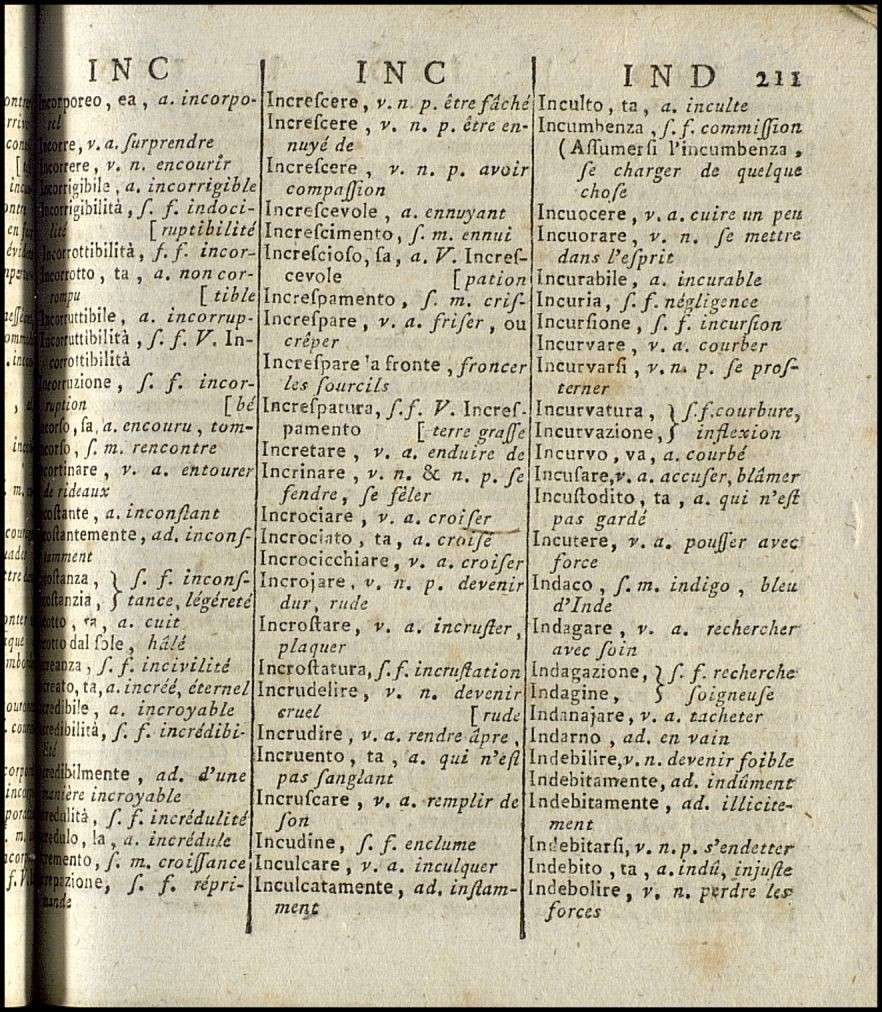 INC
Incorporeo, ea, a. incorpo-
rel
Incorre, v. a. ſurprendre
Incorrere, v. n. encourir
Incorrigibile, a. incorrigible
Incorrigibilità, ſ. f. indoci-
lité [ruptibilité
Incorrottibilità, ſ. f. incor-
Incorrotto, ta, a. non cor-
rompu [tible
Incorruttibile, a. incorrup-
Incorruttibilità, ſ. f. V. In-
corrottibilità
Incorruzione, ſ. f. incor-
ruption [bé
Incorſo, ſa, a. encouru, tom-
Incorſo, ſ. m. rencontre
Incortinare, v. a. entourer
de rideaux
Incoſtante, a. inconſtant
Incoſtantemente, ad. inconſ-
tamment
Incoſtanza, } ſ. f. inconſ-
Incoſtanzia, } tance, légéreté
Incotto, ta, a. cuit
Incotto dal ſole, hâlé
Increanza, ſ. f. incivilité
Increato, ta, a. incréé, éternel
Incredibile, a. incroyable
Incredibilità, ſ. f. incrédibi-
lité
Incredibilmente, ad. d'une
maniere incroyable
Incredulità, ſ. f. incrédulité
Incredulo, la, a. incrédule
Incremento, ſ. m. croiſſance
Increpazione, ſ. f. répri-
mande
INC
Increſcere, v. n. p. être fâché
Increſcere, v. n. p. être en-
nuyé de
Increſcere, v. n. p. avoir
compaſſion
Increſcevole, a. ennuyant
Increſcimento, ſ. m. ennui
Increſcioſo, ſa, a. V. Increſ-
cevole [pation
Increſpamento, ſ. m. criſ-
Increſpare, v. a. friſer, ou
crêper
Increſpare la fronte, froncer
les ſourcils
Increſpatura, ſ. f. V. Increſ-
pamento [terre graſſe
Incretare, v. a. enduire de
Incrinare, v. n. & n. p. ſe
fendre, ſe fêler
Incrociare, v. a. croiſer
Incrociato, ta, a. croiſé
Incrocicchiare, v. a. croiſer
Incrojare, v. n. p. devenir
dur, rude
Incroſtare, v. a. incruſter,
plaquer
Incroſtatura, ſ. f. incruſtation
Incrudelire, v. n. devenir
cruel [rude
Incrudire, v. a. rendre âpre,
Incruento, ta, a. qui n'eſt
pas ſanglant
Incruſcare, v. a. remplir de
ſon
Incudine, ſ. f. enclume
Inculcare, v. a. inculquer
Inculcatamente, ad. inſtam-
ment
IND 211
Inculto, ta, a. inculte
Incumbenza, ſ. f. commiſſion
(Aſſumerſi l'incumbenza,
ſe charger de quelque
choſe
Incuocere, v. a. cuire un peu
Incuorare, v. n. ſe mettre
dans l'eſprit
Incurabile, a. incurable
Incuria, ſ. f. négligence
Incurſione, ſ. f. incurſion
Incurvare, v. a. courber
Incurvarſi, v. n. p. ſe proſ-
terner
Incurvatura, } ſ. f. courbure,
Incurvazione, } inflexion
Incurvo, va, a. courbé
Incuſare, v. a. accuſer, blâmer
Incuſtodito, ta, a. qui n'eſt
pas gardé
Incutere, v. a. pouſſer avec
force
Indaco, ſ. m. indigo, bleu
d'Inde
Indagare, v. a. rechercher
avec ſoin
Indagazione, } ſ. f. recherche
Indagine, } ſoigneuſe
Indanajare, v. a. tacheter
Indarno, ad. en vain
Indebilire, v. n. devenir foible
Indebitamente, ad. indûment
Indebitamente, ad. illicite-
ment
Indebitarſi, v. n. p. s'endetter
Indebito, ta, a. indû, injuſte
Indebolire, v. n. perdre les
forces